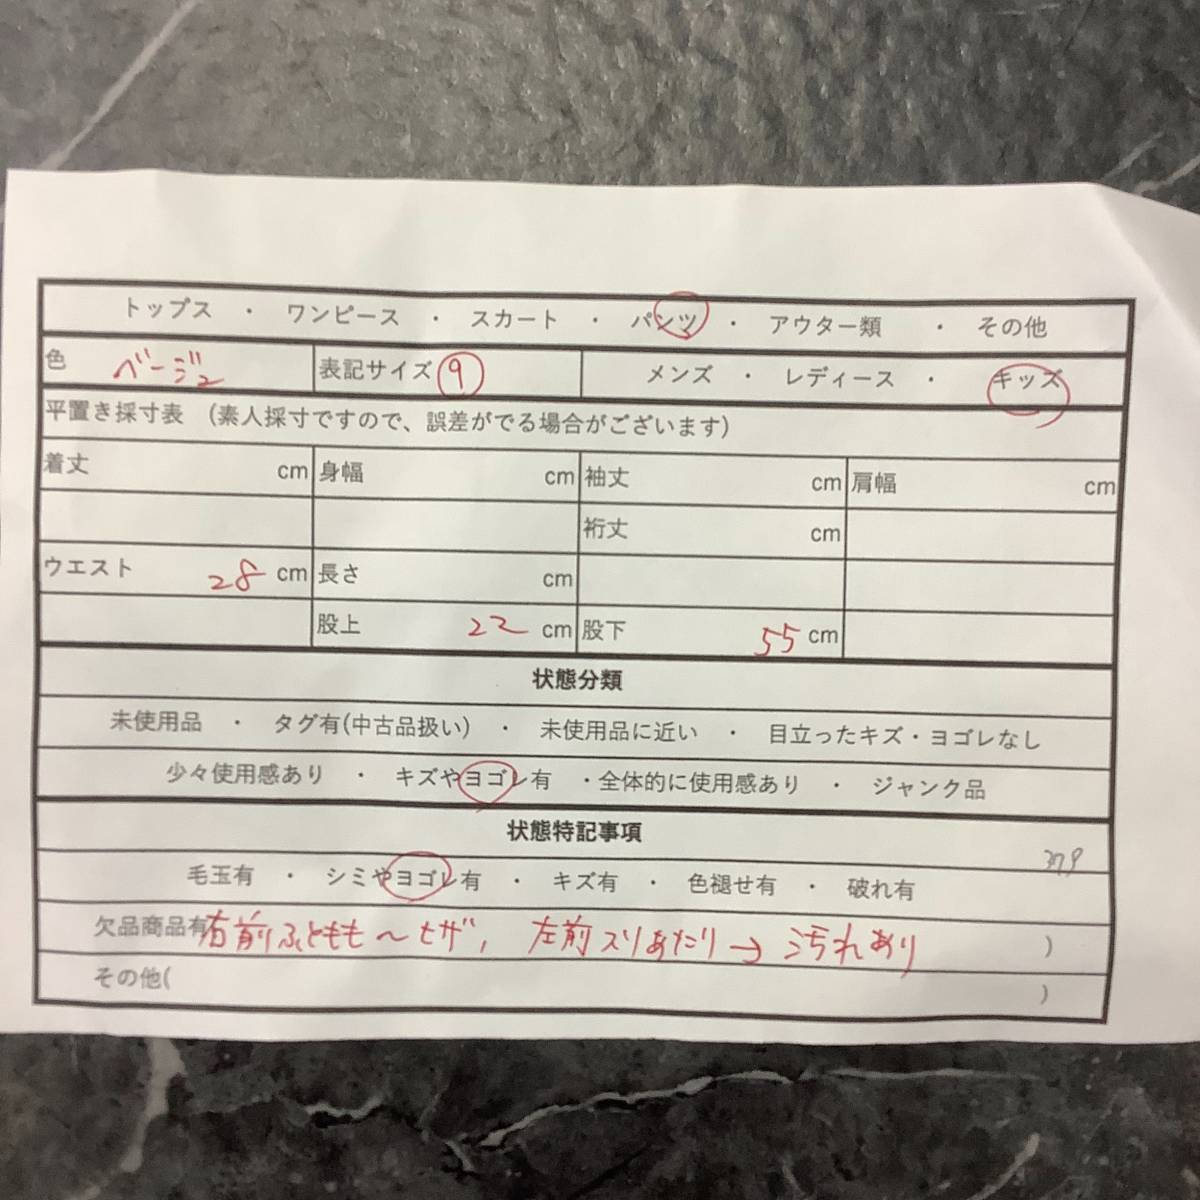 トップス ・ ワンピース ・ スカート ・ パンツ ・ アウター類 ・ その他
色 ベージュ 表記サイズ 9 メンズ ・ レディース ・ キッズ
平置き採寸表 (素人採寸ですので、誤差がでる場合がございます)
着丈 cm 身幅 cm 袖丈 cm 肩幅 cm
裄丈 cm
ウエスト 28 cm 長さ cm
股上 22 cm 股下 55 cm
状態分類
未使用品 ・ タグ有(中古品扱い) ・ 未使用品に近い ・ 目立ったキズ・ヨゴレなし
少々使用感あり ・ キズやヨゴレ有 ・全体的に使用感あり ・ ジャンク品
状態特記事項
毛玉有 ・ シミやヨゴレ有 ・ キズ有 ・ 色褪せ有 ・ 破れ有
欠品商品有 右前ふともも〜ヒザ, 左前スソあたり→汚れあり )
その他( )